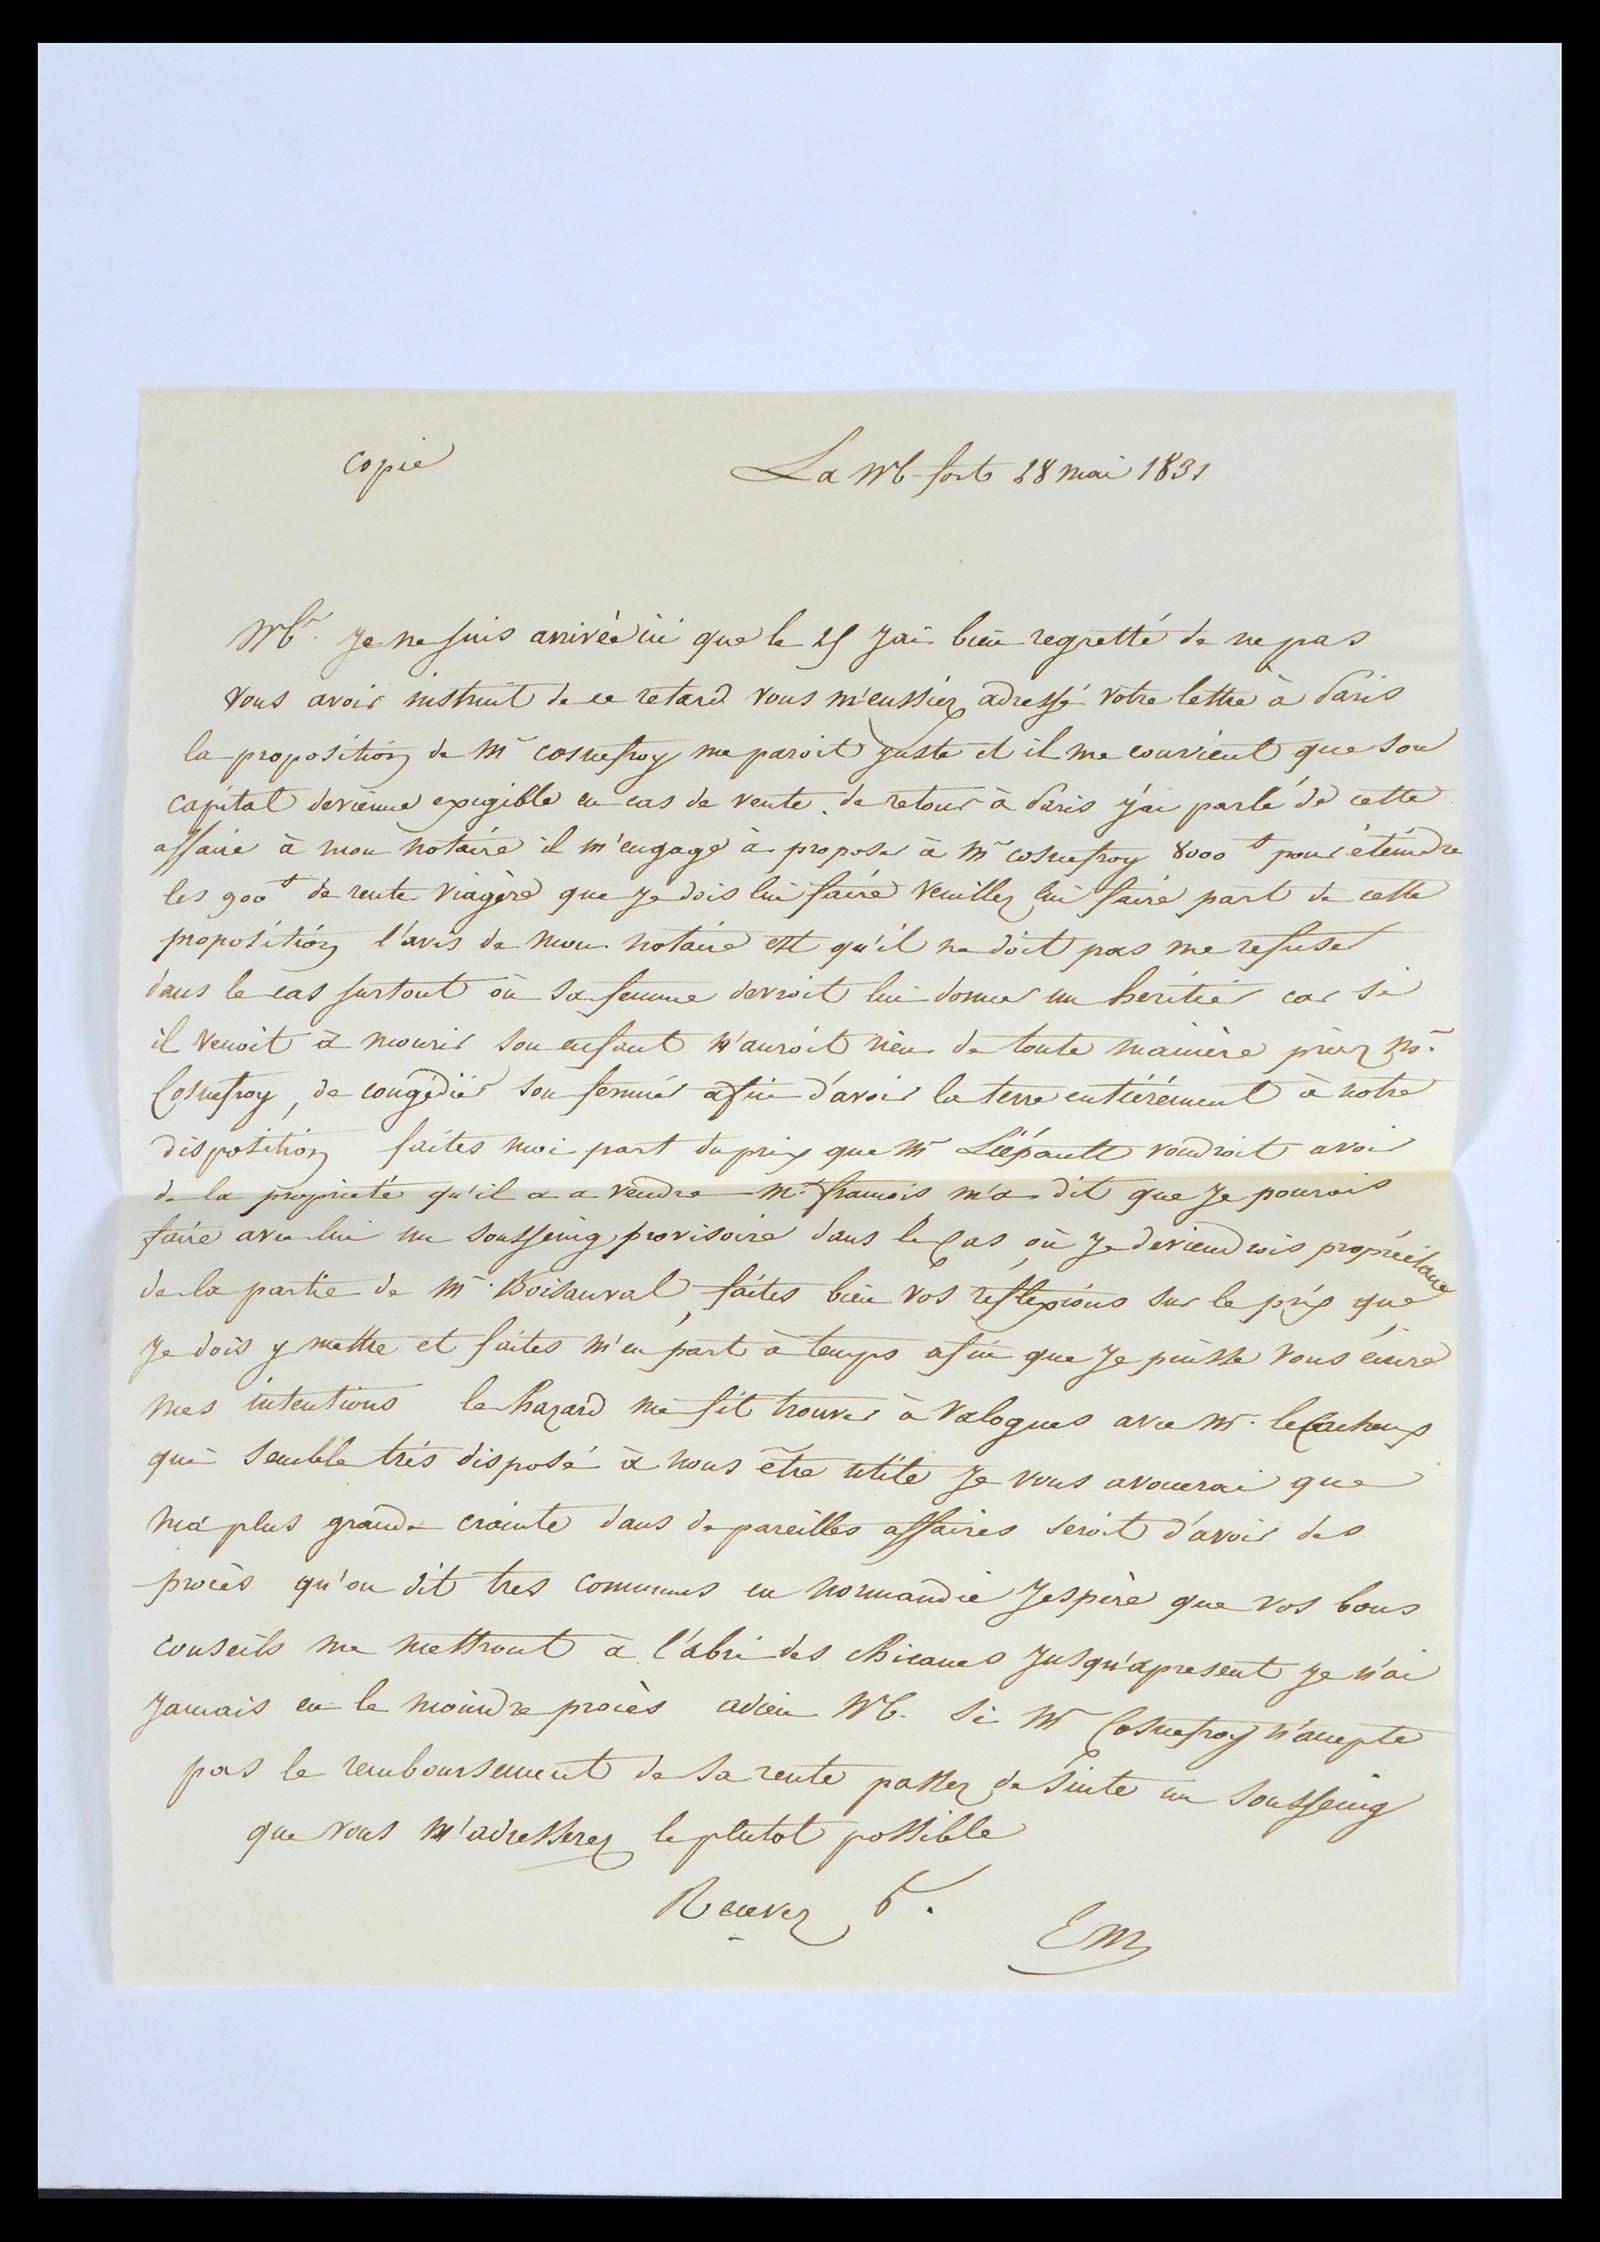 copie La Mb-fort 28 mai 1831
Mr. Je ne suis arrivée ici que le 25 J'ai bien regretté de ne pas
vous avoir instruit de ce retard vous m'eussiez adressé votre lettre à Paris
la proposition de Mr Cosnefroy me paroit juste et il me convient que son
capital devienne exigible en cas de vente. de retour à Paris j'ai parlé de cette
affaire à mon notaire il m'engage à proposer à Mr Cosnefroy 8000 f pour éteindre
les 900 f de rente viagère que je dois lui faire veuillez lui faire part de cette
proposition l'avis de mon notaire est qu'il ne doit pas me refuser
dans le cas surtout où sa femme devroit lui donner un héritier car si
il venoit à mourir son enfant n'auroit rien de toute manière priez Mr
Cosnefroy, de congédier son fermier afin d'avoir la terre entièrement à notre
disposition faites moi part du prix que Mr Liépault voudroit avoir
de la propriété qu'il a a vendre Mr. francois m'a dit que je pourois
faire avec lui un sousseing provisoire dans le cas où je deviendrois propriétaire
de la partie de Mr. Boisauval, faites bien vos réflexions sur le prix que
je dois y mettre et faites m'en part à temps afin que je puisse vous écrire
mes intentions le hazard me fit trouver à Valognes avec Mr.
qui semble très disposé à nous être utile je vous avouerai que
ma plus grande crainte dans de pareilles affaires seroit d'avoir des
procès qu'on dit tres communs en normandie J'espère que vos bons
conseils me mettront à l'abri des chicanes Jusqu'apresent je n'ai
Jamais eu le moindre procès adieu Mr. Si Mr Cosnefroy n'accepte
pas le remboursement de sa rente passez de suite un sousseing
que vous m'adresserez le plutot possible
Recevez &.
EM